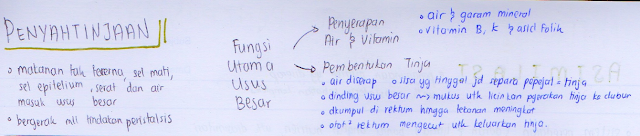 PENYAHTINJAAN
• makanan tak tercerna, sel mati,
sel epitelium, serat dan air
masuk usus besar
• bergerak mll tindakan peristalsis
Fungsi
Utama
Usus
Besar
Penyerapan
Air & Vitamin
• air & garam mineral
• vitamin B, K & asid folik
Pembentukan Tinja
• air diserap → sisa yg tinggal jd separa pepejal - tinja
• dinding usus besar ~> mukus utk licinkan pgerakan tinja ke dubur
• dkumpul di rektum hingga tekanan meningkat
• otot² rektum mengecut utk keluarkan tinja.